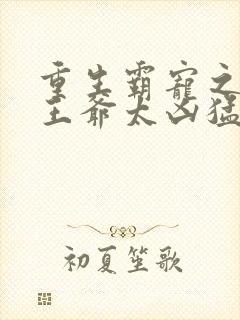 重生霸宠之
王爷太凶猛
初夏笙歌